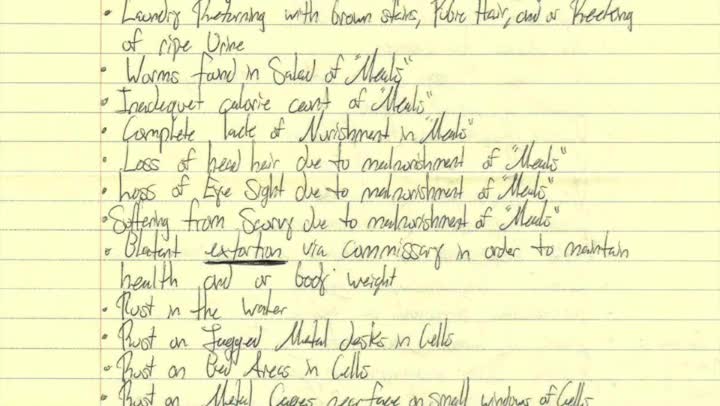 • Laundry Returning with brown stains, Pubic Hair, and or Reeking
of ripe Urine
• Worms found in Salad of "Meals"
• Inadequet calorie count of "Meals"
• Complete lack of Nurishment in "Meals"
• Loss of head hair due to malnurishment of "Meals"
• Loss of Eye Sight due to malnurishment of "Meals"
• Suffering from Scurvy due to malnurishment of "Meals"
• Blatent extortion via Commissary in order to maintain
health and or body weight
• Rust in the water
• Rust on Jagged Metal desks in Cells
• Rust on Bed Areas in Cells
• Rust on Metal Cages near face on small windows of Cells